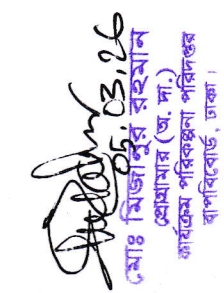 05.03.26
মোঃ মিজানুর রহমান
প্রোগ্রামার (অ. দা.)
কার্যক্রম পরিকল্পনা পরিদপ্তর
বাপবিবোর্ড, ঢাকা।